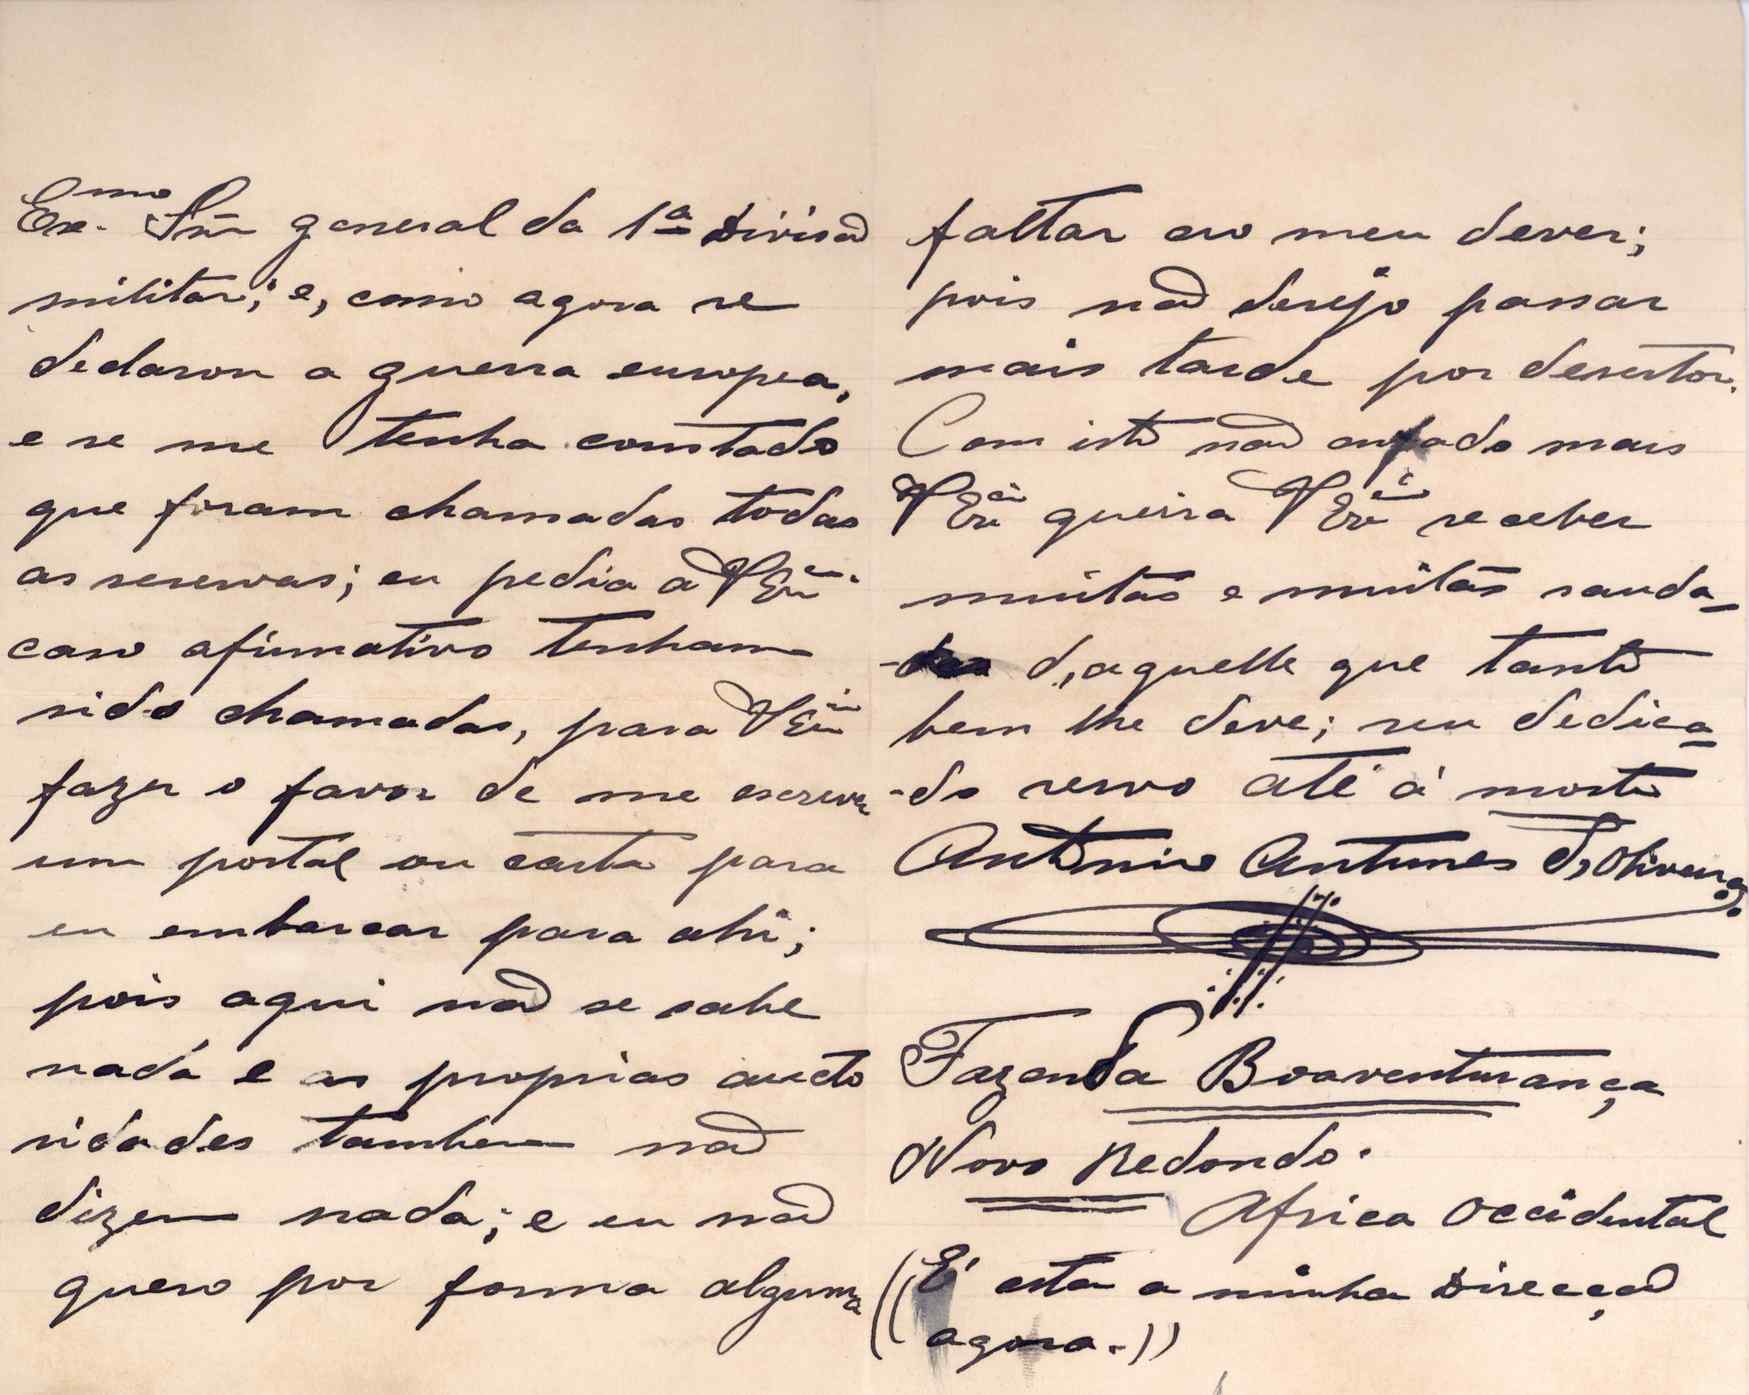 Exmo. Snr general da 1ª Divisão
militar; e, como agora se
declarou a guerra europea,
e se me tenha constado
que foram chamadas todas
as reservas; eu pedia a VExª.
caso afirmativo tenham
sido chamadas, para VExª
fazer o favor de me escrever
um postal ou carta para
eu embarcar para ahi;
pois aqui não se sabe
nada e as proprias aucto
ridades tambem não
dizem nada; e eu não
quero por forma alguma
faltar ao meu dever;
pois não desejo passar
mais tarde por desertor.
Com isto não enfado mais
VExª queira VExª receber
muitas e muitas sauda-
-des d,aquelle que tanto
bem lhe deve; seu dedica-
-do servo até á morte
Antonio Antunes d,Oliveira.
Fazenda Boaventurança
Novo Redondo.
Africa Occidental
((É esta a minha Direcção
agora.))